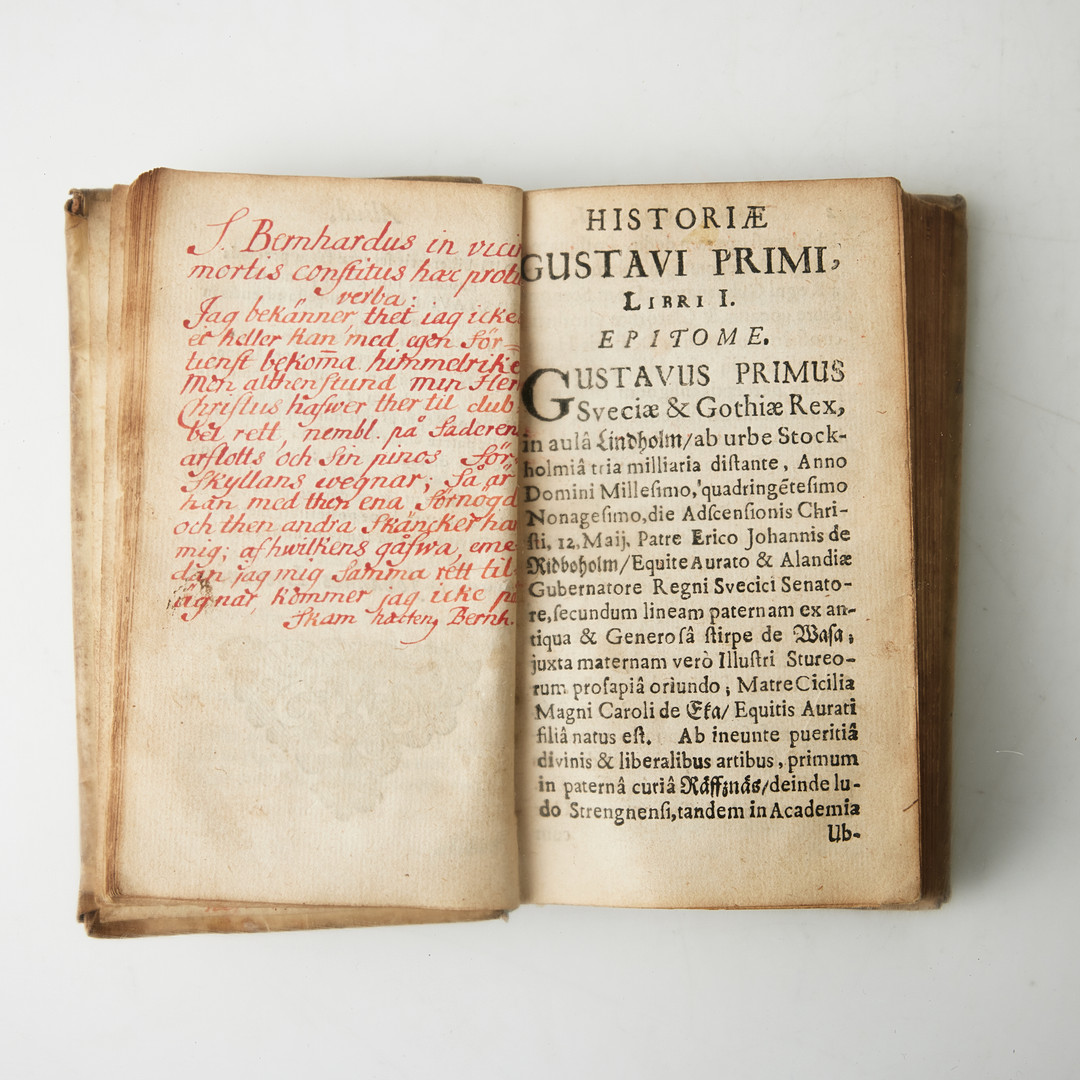 S. Bernhardus in vici
mortis conſtitus hæc protu
verba:
Jag bekänner thet iag icke
er heller kan med egen för-
tienſt bekom̃a himmelrike
Men althenſtund min Her
Chriſtus hafwer ther til dub
bel rett, nembl. på Faderen
arflotts och ſin pinos för
ſkyllans wegnar; Så är
han med then ena förnögd
och then andra ſkäncker ha
mig; af hwilkens gåfwa, eme
dan jag mig ſamma rett til-
ägnar, kommer jag icke på
ſkam Bernh.
HISTORIÆ
GUSTAVI PRIMI,
LIBRI I.
EPITOME.
GUSTAVUS PRIMUS
Sveciæ & Gothiæ Rex,
in aulâ Lindholm/ab urbe Stock-
holmiâ tria milliaria diſtante, Anno
Domini Milleſimo, quadringẽteſimo
Nonageſimo, die Adſcenſionis Chri-
ſti, 12, Maij, Patre Erico Johannis de
Ridboholm/Equite Aurato & Alandiæ
Gubernatore Regni Svecici Senato-
re, ſecundum lineam paternam ex an-
tiqua & Generoſâ ſtirpe de Waſa;
juxta maternam verò Illuſtri Stureo-
rum proſapiâ oriundo; Matre Cicilia
Magni Caroli de Eka/ Equitis Aurati
filiâ natus eſt. Ab ineunte pueritiâ
divinis & liberalibus artibus, primum
in paternâ curiâ Räffznäs/deinde lu-
do Strengnenſi, tandem in Academia
Ub-